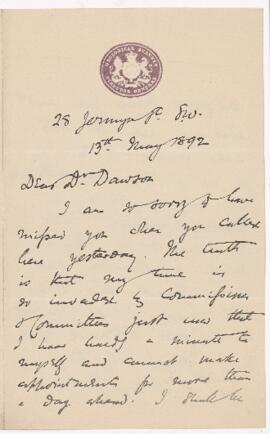 GEOLOGICAL SURVEY
DIRECTOR GENERAL
28 Jermyn St. S.W.
13th May 1892
Dear Dr. Dawson
I am so sorry to have
missed you when you called
here yesterday. The truth
is that my time is
so invaded by Commissions
& Committees just now that
I have hardly a minute to
myself and cannot make
appointments for more than
a day ahead. I shall be